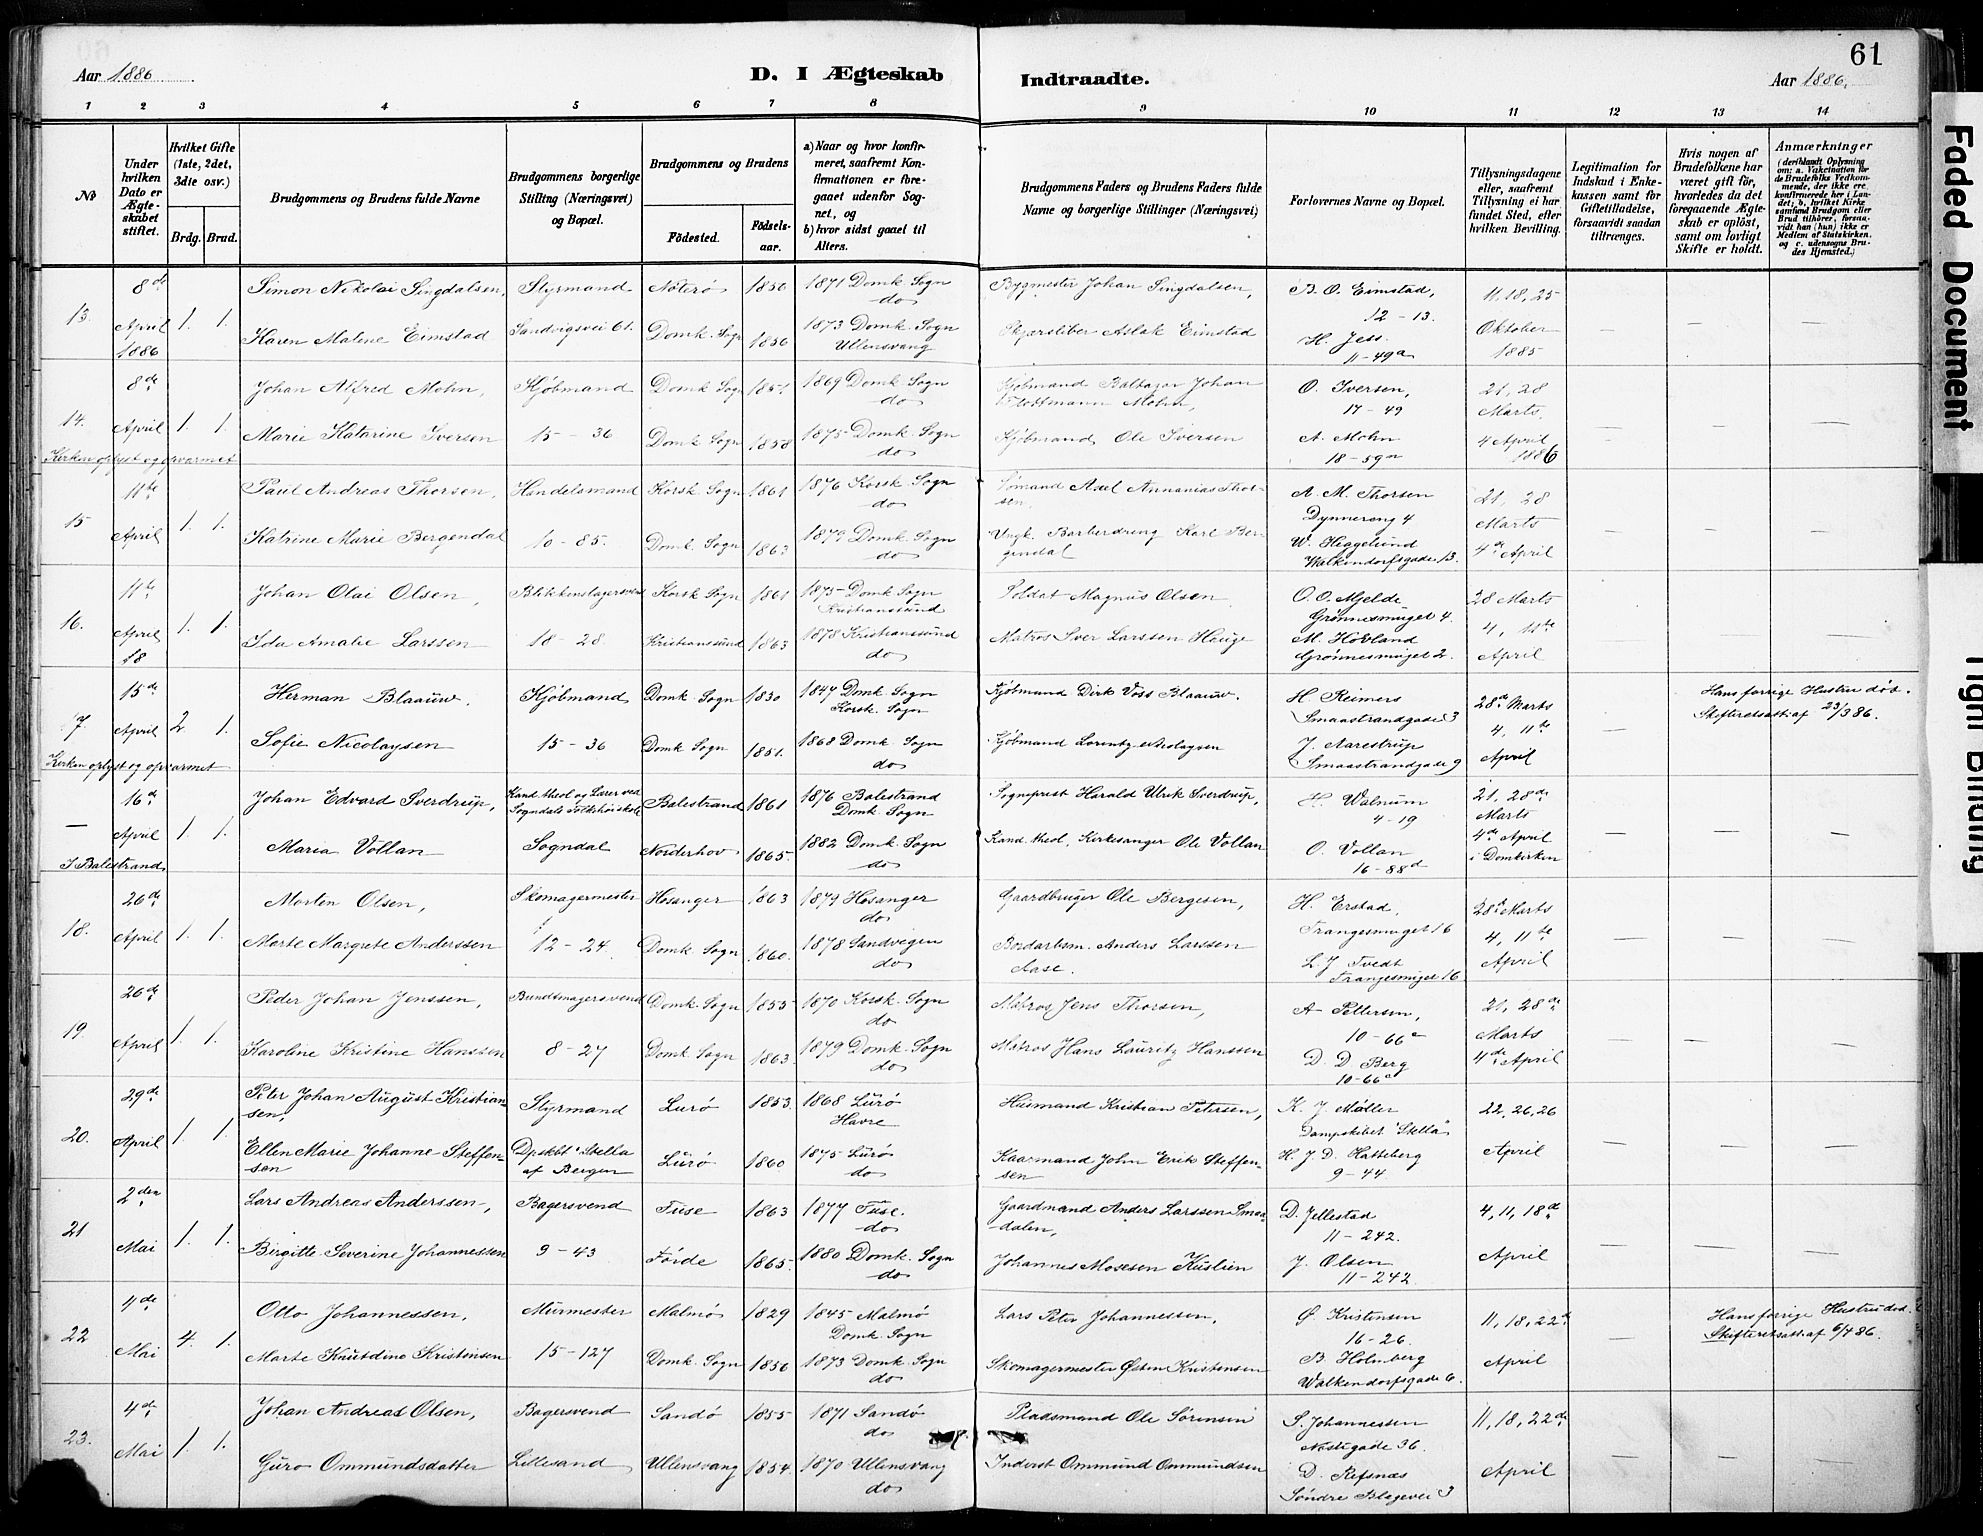 61
Aar 1886
D. I Ægteskab Indtraadte.
Aar 1886.
1 2 3 4 5 6 7 8 9 10 11 12 13 14
No
Under hvilken Dato er Ægteskabet stiftet.
Hvilket Gifte (1ste, 2det, 3die osv.)
Brdg. Brud.
Brudgommens og Brudens fulde Navne
Brudgommens borgerlige Stilling (Næringsvei) og Bopæl.
Brudgommens og Brudens
Fødested. Fødselsaar.
a) Naar og hvor konfirmeret, saafremt Konfirmationen er foregaaet udenfor Sognet, og
b) hvor sidst gaaet til Alters.
Brudgommens Faders og Brudens Faders fulde Navne og borgerlige Stillinger (Næringsvei)
Forlovernes Navne og Bopæl.
Tillysningsdagene eller, saafremt Tillysning ei har fundet Sted, efter hvilken Bevilling.
Legitimation for Indskud i Enkekassen samt for Giftetilladelse, forsaavidt saadan tiltrænges.
Hvis nogen af Brudefolkene har været gift før, hvorledes da det foregaaende Ægteskab er opløst, samt om lovligt Skifte er holdt.
Anmærkninger
(deriblandt Oplysning om: a. Vakcination for de Brudefolks Vedkommende, der ikke ere konfirmerede her i Landet; b. hvilket Kirkesamfund Brudgom eller Brud tilhører, forsaavidt han (hun) ikke er Medlem af Statskirken. og c. udensogns Brudes Hjemsted.)
13. 8de April 1886 1. 1.
Simon Nikolai Singdalsen, Styrmand Nøterø 1850 1871 Domk. Sogn do
Bygmester Johan Singdalsen, B. O. Eimstad, 12-13. 11, 18, 25
Karen Malene Eimstad Sandvigsvei 61. Domk. Sogn 1856 1873 Domk. Sogn Ullensvang
Skjærsliber Aslak Eimstad H. Jess. 11-49a Oktober 1885
14. 8de April 1. 1.
Johan Alfred Mohn, Kjøbmand Domk. Sogn 1851 1869 Domk. Sogn do
Kjøbmand Baltazar Johan Mohn, O. Iversen, 17-49 21, 28 Marts,
Marie Katarine Iversen 15-36 Domk. Sogn 1858 1875 Domk. Sogn do
Kjøbmand Ole Iversen A. Mohn 18-59a 4 April 1886
Kirken oplyst og opvarmet
15 11te April 1. 1.
Paul Andreas Thorsen, Handelsmand Korsk. Sogn 1861 1876 Korsk. Sogn do
Sømand Axel Annanias Thorsen. A. M. Thorsen Dynnereng 4 21, 28 Marts
Katrine Marie Bergendal 10-85. Domk. Sogn 1863 1879 Domk. Sogn do
Ungk. Barberdreng Karl Bergendal W. Heggelund Walkendorfsgade 13. 4de April
16. 11te April 18 1. 1.
Johan Olai Olsen, Blikkenslagersvend Korsk. Sogn 1861 1875 Domk. Sogn Kristianssund
Soldat Magnus Olsen O. O. Mjelde Grønnesmuget 4. 28 Marts
Ida Amalie Larssen 18-28. Kristianssund 1863 1878 Kristianssund do
Matros Iver Larssen Hauge M. Hovland Grønnesmuget 2. 4, 11te April
17 15de April 2 1.
Herman Blaauw, Kjøbmand Domk. Sogn 1830 1847 Domk. Sogn Korsk. Sogn
Kjøbmand Dirk Voss Blaauw. H. Reimers Smaastrandgade 3 28de Marts
Hans forrige Hustru død. Skifteretsatt. af 23/3 86.
Sofie Nicolaysen 15-36 Domk. Sogn 1851. 1868 Domk. Sogn do
Kjøbmand Lorentz Nicolaysen J. Aarestrup Smaastrandgade 9 4, 11te April
Kirken oplyst og opvarmet
— 16de April 1. 1.
Johan Edvard Sverdrup, Kand. theol og Lærer ved Sogndals Folkehøiskole Balestrand 1861 1876 Balestrand Domk. Sogn
Sogneprest Harald Ulrik Sverdrup, H. Walnum 4-19 21, 28de Marts
Maria Vollan Sogndal Norderhov 1865. 1882 Domk. Sogn do
Kand. theol. Kirkesanger Ole Vollan O. Vollan 16-88d 4de April i Domkirken
I Balestrand
18. 26de April 1. 1.
Morten Olsen, Skomagermester Hosanger 1863 1879 Hosanger do
Gaardbruger Ole Bergesen, H. Erstad, Trangesmuget 16 28de Marts
Marte Margrete Anderssen 12-24 Domk. Sogn 1860. 1878 Sandvigen do
Bordarbm. Anders Larssen Aase. L. J. Tvedt Trangesmuget 16 4, 11te April
19 26de April 1. 1.
Peder Johan Jenssen, Bundtmagersvend Domk. Sogn 1855 1870 Korsk. Sogn do
Matros Jens Thorsen, A. Pettersen, 10-66a 21, 28de Marts
Karoline Kristine Hanssen 8-27 Domk. Sogn 1863. 1879 Domk. Sogn do
Matros Hans Lauritz Hanssen D. D. Berg 10-66a 4de April
20. 29de April 1. 1.
Peter Johan August Kristiansen, Styrmand Lurø 1853. 1868 Lurø Havre
Husmand Kristian Petersen, K. J. Møller Dampskibet "Stella" 22, 26, 26
Ellen Marie Johanne Steffensen Dpskbt "Stella af Bergen Lurø 1860 1875 Lurø do
Kaarmand John Erik Steffensen H. J. D. Hatteberg 9-44. April
21 2den Mai 1. 1.
Lars Andreas Anderssen, Bagersvend Fuse 1863 1877 Fuse. do
Gaardmand Anders Larssen Smaadalen, D. Jellestad 11-242. 4, 11, 18de
Birgitte Severine Johannessen 9-43 Førde 1865. 1880 Domk. Sogn do
Johannes Mosesen Kuslien J. Olsen 11-242 April
22 4de Mai 4. 1.
Otto Johannessen, Murmester Malmø 1829 1845 Malmø Domk. Sogn
Lars Peter Johannessen, Ø. Kristensen 16-26. 11, 18, 22de
Hans forrige Hustru død. Skifteretsatt. af 6/4 86.
Marte Knutdine Kristensen 15-127 Domk. Sogn 1856 1873 Domk. Sogn do
Skomagermester Østen Kristensen B. Holmberg Walkendorfsgade 6. April
23. 4de Mai 1. 1.
Johan Andreas Olsen, Bagersvend Sandø 1855 1871 Sandø do
Pladsmand Ole Sørensen S. Johannessen Nestegade 36. 11, 18, 22de
Guro Ommundsdatter Lillesand Ullensvang 1854. 1870 Ullensvang do
Inderst Ommund Ommundsen D. Refsnæs Søndre Blegevei 3 April
Faded Document
Tight Binding